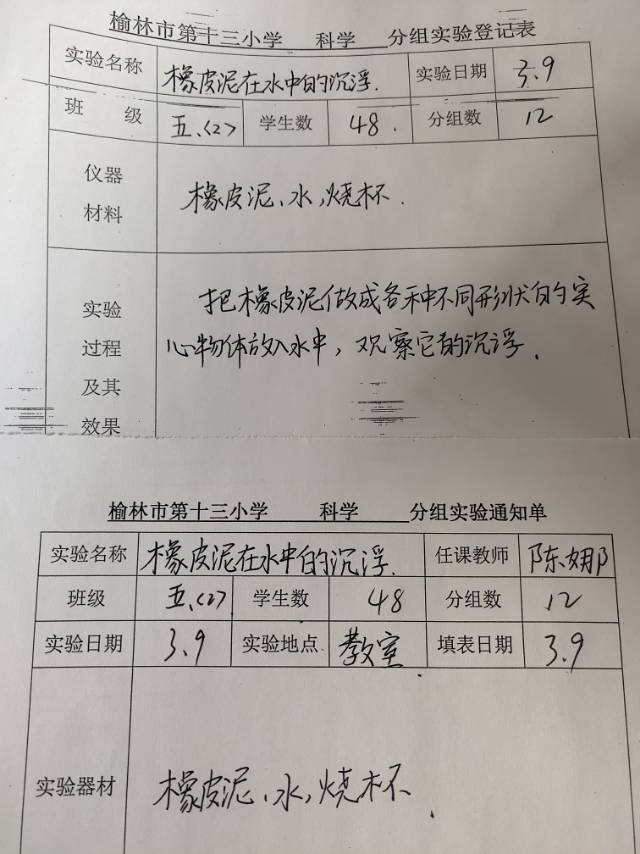 榆林市第十三小学 科学 分组实验登记表
实验名称 橡皮泥在水中的沉浮. 实验日期 3.9
班 级 五.<2> 学生数 48. 分组数 12
仪器
材料
橡皮泥、水,烧杯.
实验
过程
及其
效果
把橡皮泥做成各种不同形状的实
心物体放入水中,观察它的沉浮.
榆林市第十三小学 科学 分组实验通知单
实验名称 橡皮泥在水中的沉浮. 任课教师 陈娜
班级 五.<2> 学生数 48 分组数 12
实验日期 3.9 实验地点 教室 填表日期 3.9
实验器材 橡皮泥、水,烧杯.